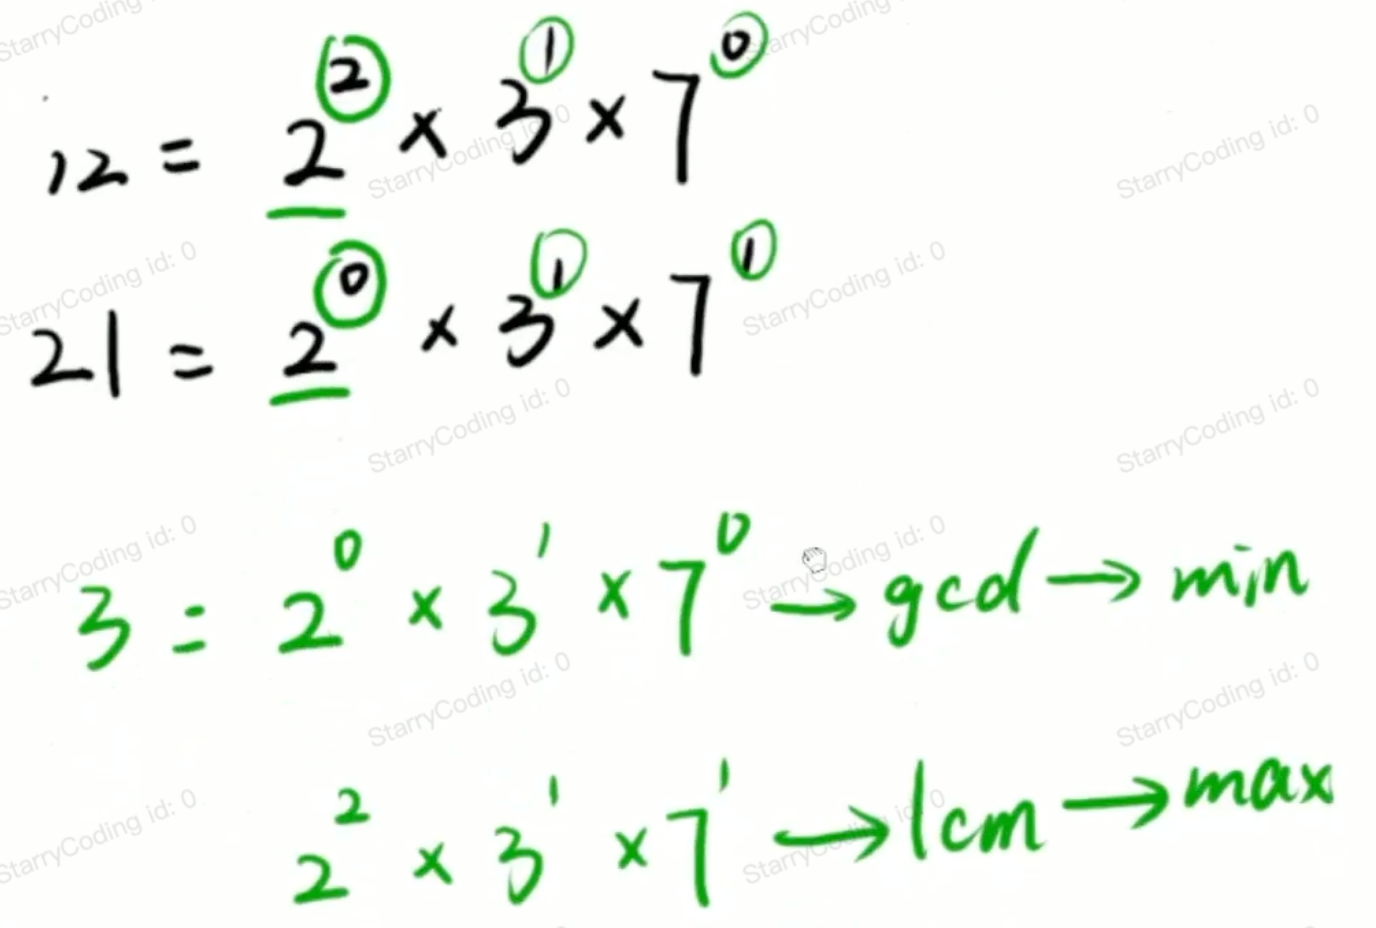 12 = 2² × 3¹ × 7⁰
21 = 2⁰ × 3¹ × 7¹
3 = 2⁰ × 3¹ × 7⁰ → gcd → min
2² × 3¹ × 7¹ → lcm → max
StarryCoding id: 0